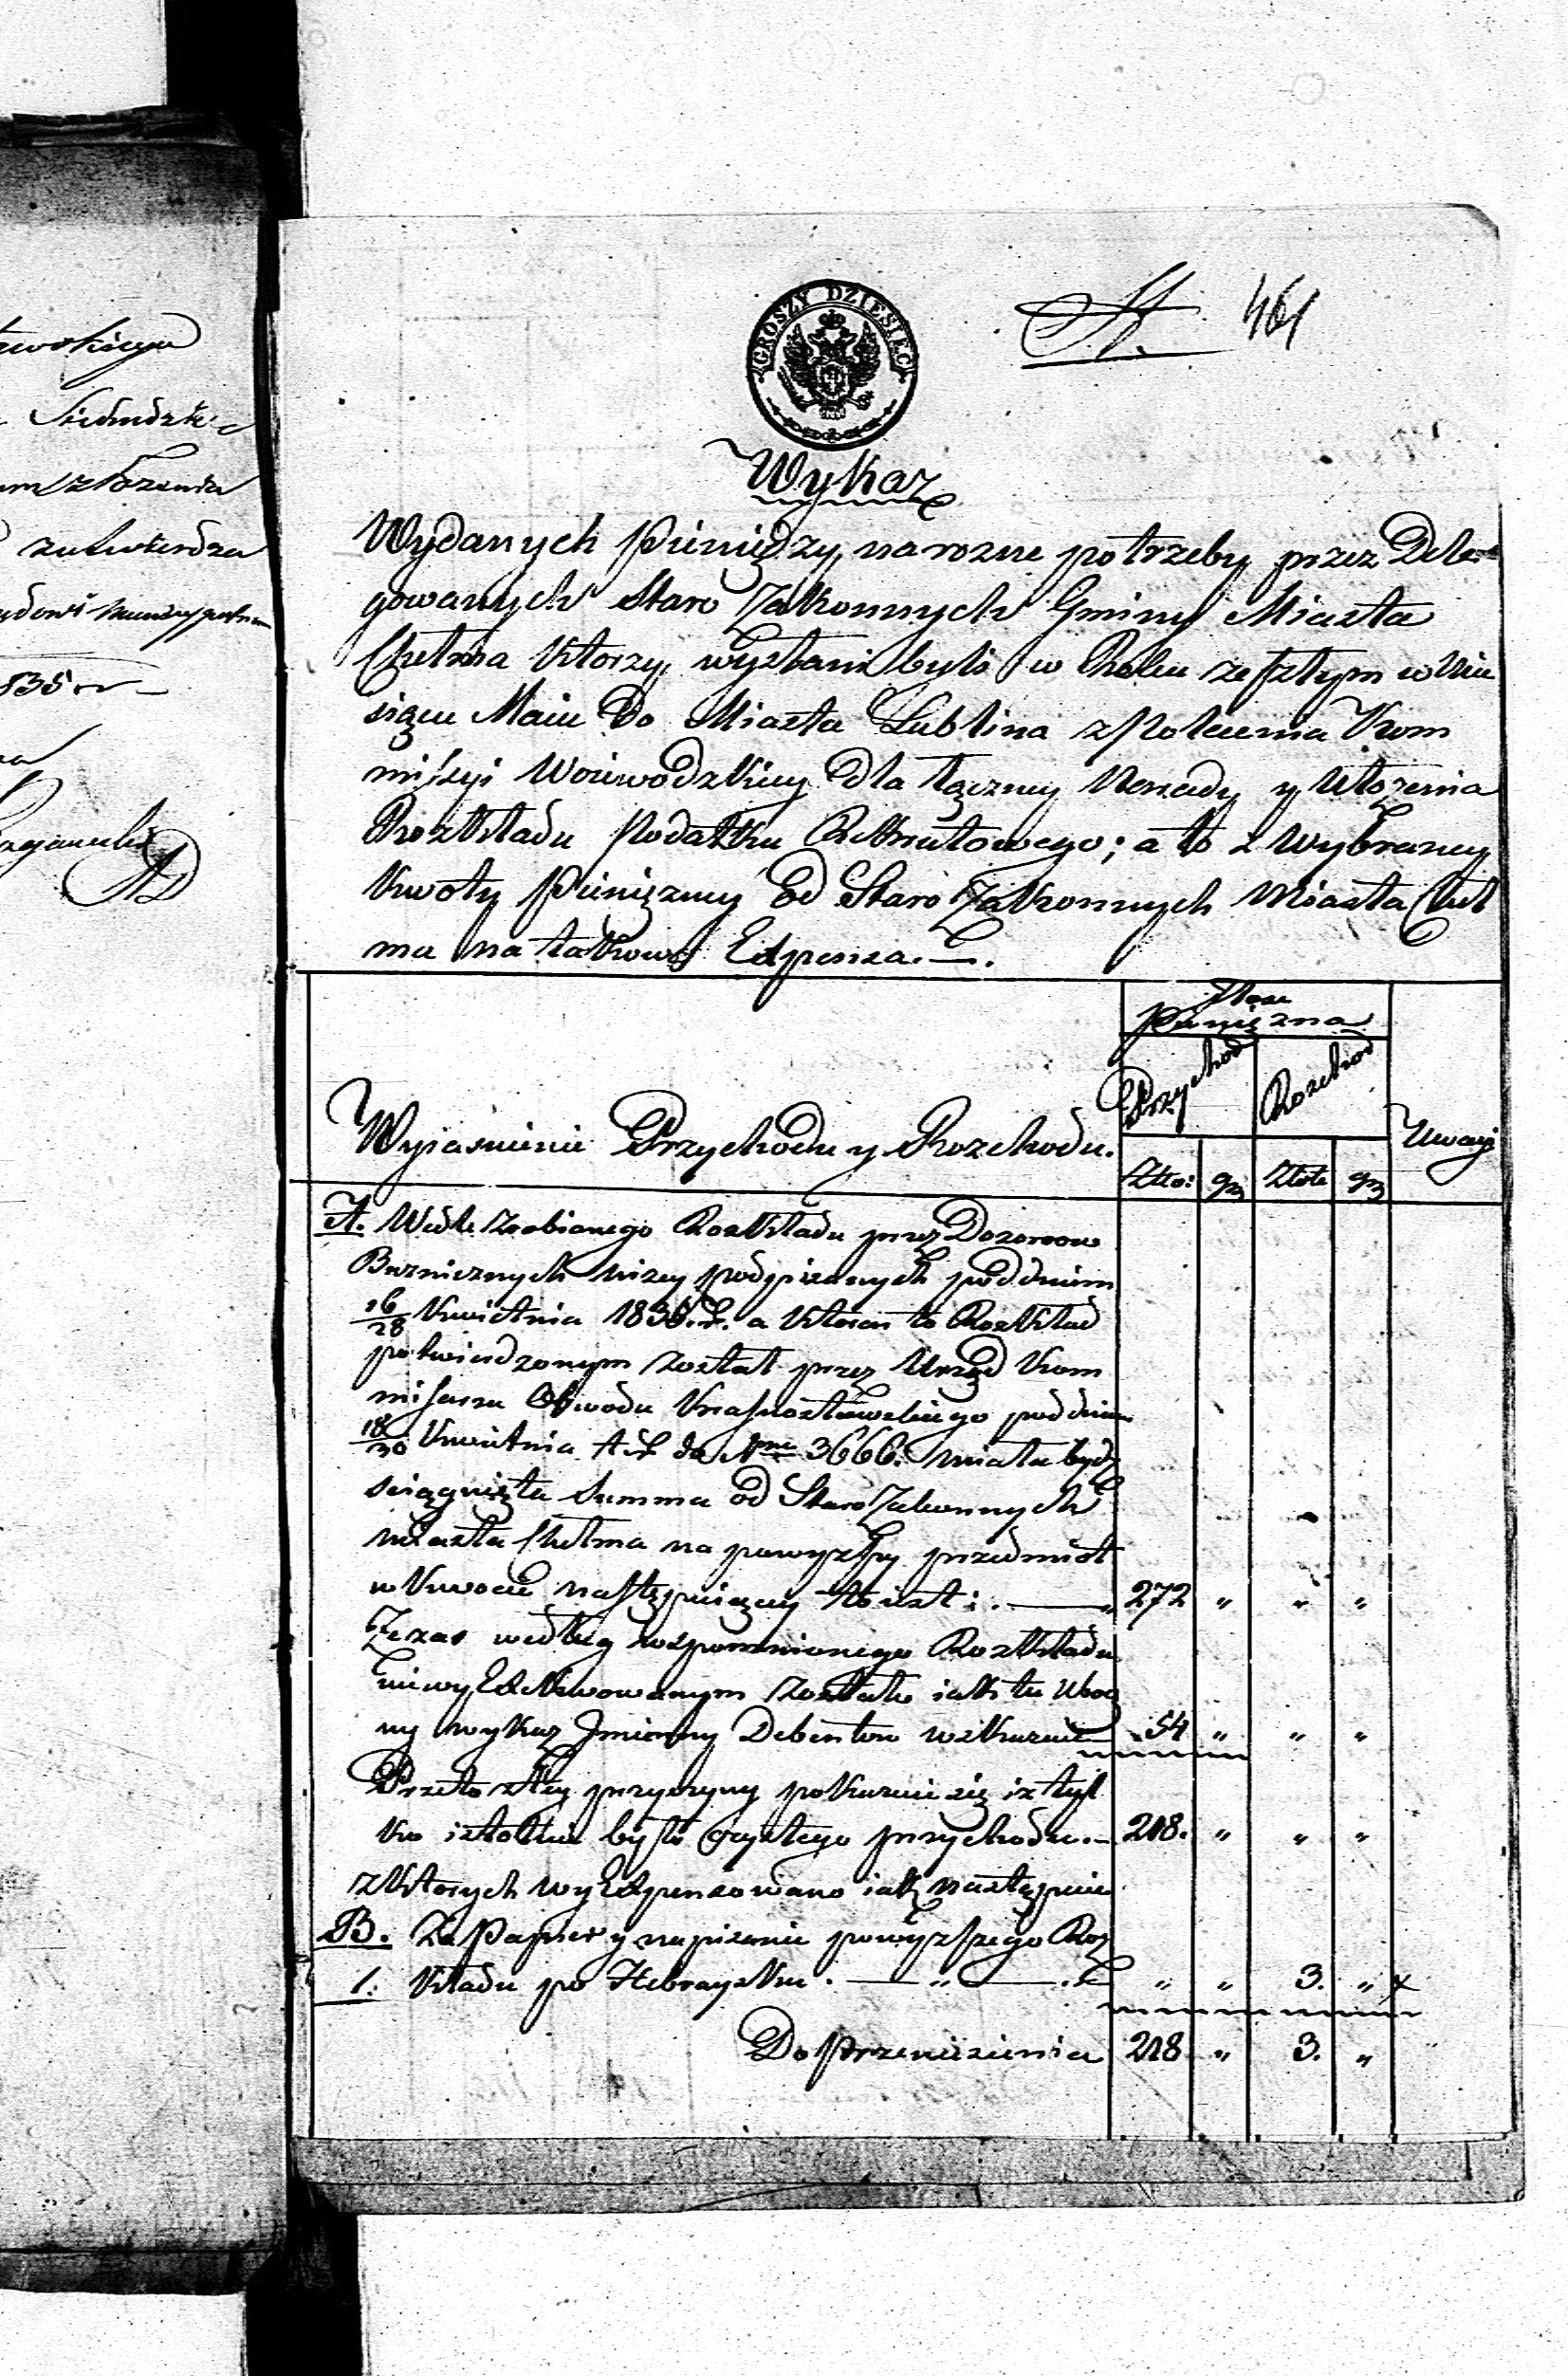 Siedmdzie
złożenia
zatwierdza
1835 r
GROSZY DZIESIĘĆ
A. 461
Wykaz
Wydanych Pieniędzy, na rozne potrzeby przez Dele-
gowanych Staro Zakonnych Gminy Miasta
Chełma ktorzy, wysłani byli w Roku zeszłym w Mie
siącu Maiu Do Miasta Lublina z Polecenia Kom
missyi Woiewodzkiey Dla łączney Narady y Ułożenia
Rozkładu Podatku Rekrutowego; a to z wybraney
kwoty Pieniężney Od Staro Zakonnych Miasta Cheł
ma na takowe Expensa.—.
Ilość
Pieniężna
Przychod
Rozchod
Wyiasnienie Przychodu y Rozchodu.
Uwagi
Złto:
gr
Złote
gr
A. Wedle Zrobionego Rozkładu przez Dozorcow
Bużnicznych niżey podpisanych pod dniem
16/28 Kwietnia 1836. r. a ktoren to Rozkład
potwierdzonym został przez Urząd Kom
missarza Obwodu Krasnostawskiego pod dniem
18/30 Kwietnia t. r. do Nru 3666. miała bydź
sciągnięta Summa od Staro Zakonnych
miasta Chełma na powyższy przedmiot
w kwocie następuiącey to iest: . — 272 " " "
Ze zas według wspomnionego Rozkładu
niewyExekwowanym zostało iak tu Uboc
ny wykaz Imienny Debentow wskazuie 54 " " "
Przeto z tey przyczyny pokazuie się iz tyl
ko istotnie było czystego przychodu.— 218. " " "
z ktorych wyExpensowano iak następuie
B. Za Papier y napisanie powyższego Roz
1. kładu po Hebraysku . — " — . " " 3. " x
Do Przeniesienia 218 " 3. "